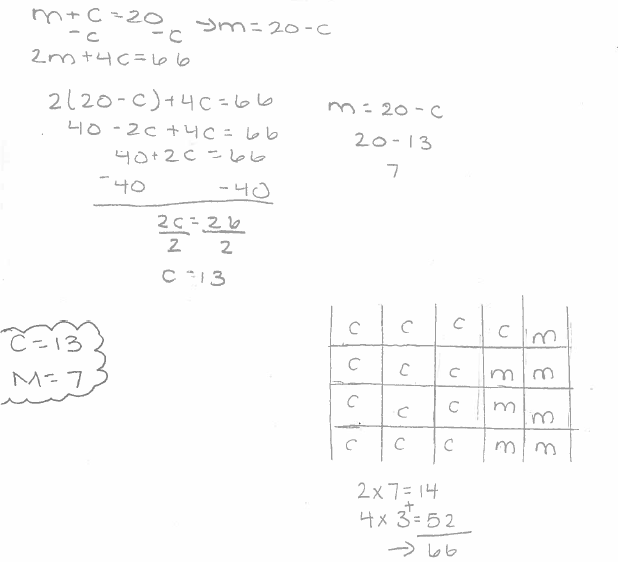 m + c = 20 → m = 20 - c
-c -c
2m + 4c = 66
2(20 - c) + 4c = 66
40 - 2c + 4c = 66
40 + 2c = 66
-40 -40
2c = 26
2 2
c = 13
m = 20 - c
20 - 13
7
C = 13
M = 7
c c c c m
c c c m m
c c c m m
c c c m m
2 x 7 = 14
+
4 x 3 = 52
→ 66